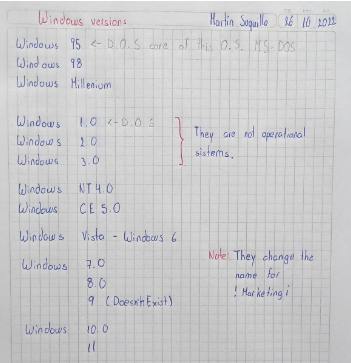 Windows versions Martin Suquillo 26 10 2022
Windows 95 <- D.O.S core of this O.S. MS-DOS
Windows 98
Windows Millenium
Windows 1.0 <- D.O.S
Windows 2.0
Windows 3.0
They are not operational
sistems.
Windows NT 4.0
Windows CE 5.0
Windows Vista - Windows 6
Windows 7.0
8.0
9 (Doesn't Exist)
Note: They change the
name for
! Marketing ¡
Windows 10.0
11